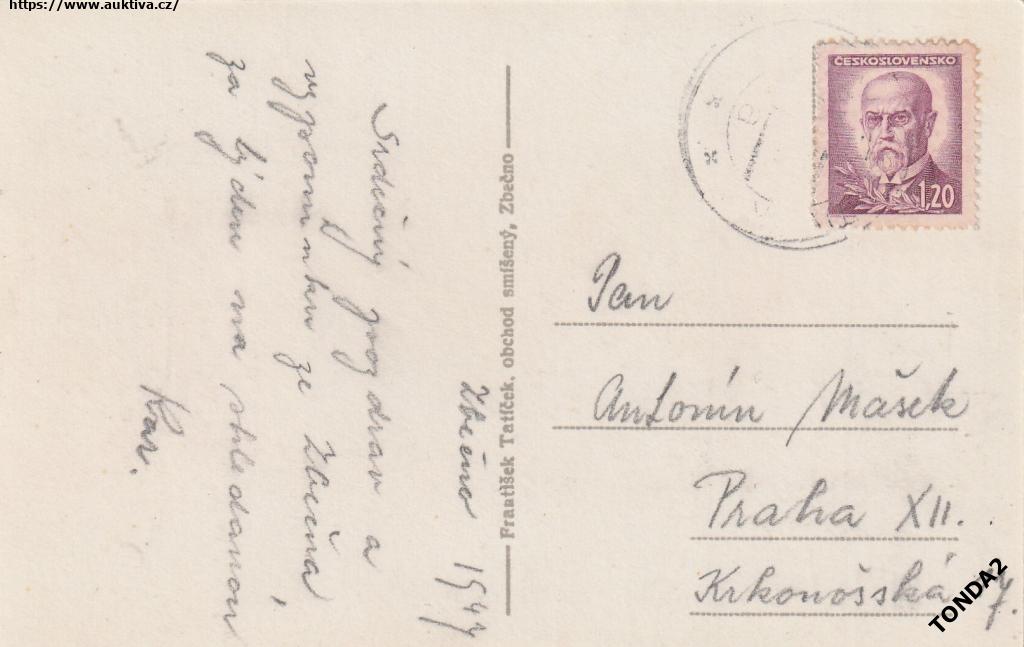 https://www.auktiva.cz/
Zbečno 1947
Srdečný pozdrav a
vzpomínku ze Zbečna,
za týden na shledanou
Kar.
František Tatíček, obchod smíšený, Zbečno
ČESKOSLOVENSKO
1,20
Pan
Antonín Mašek
Praha XII.
Krkonošská 7.
TONDA2